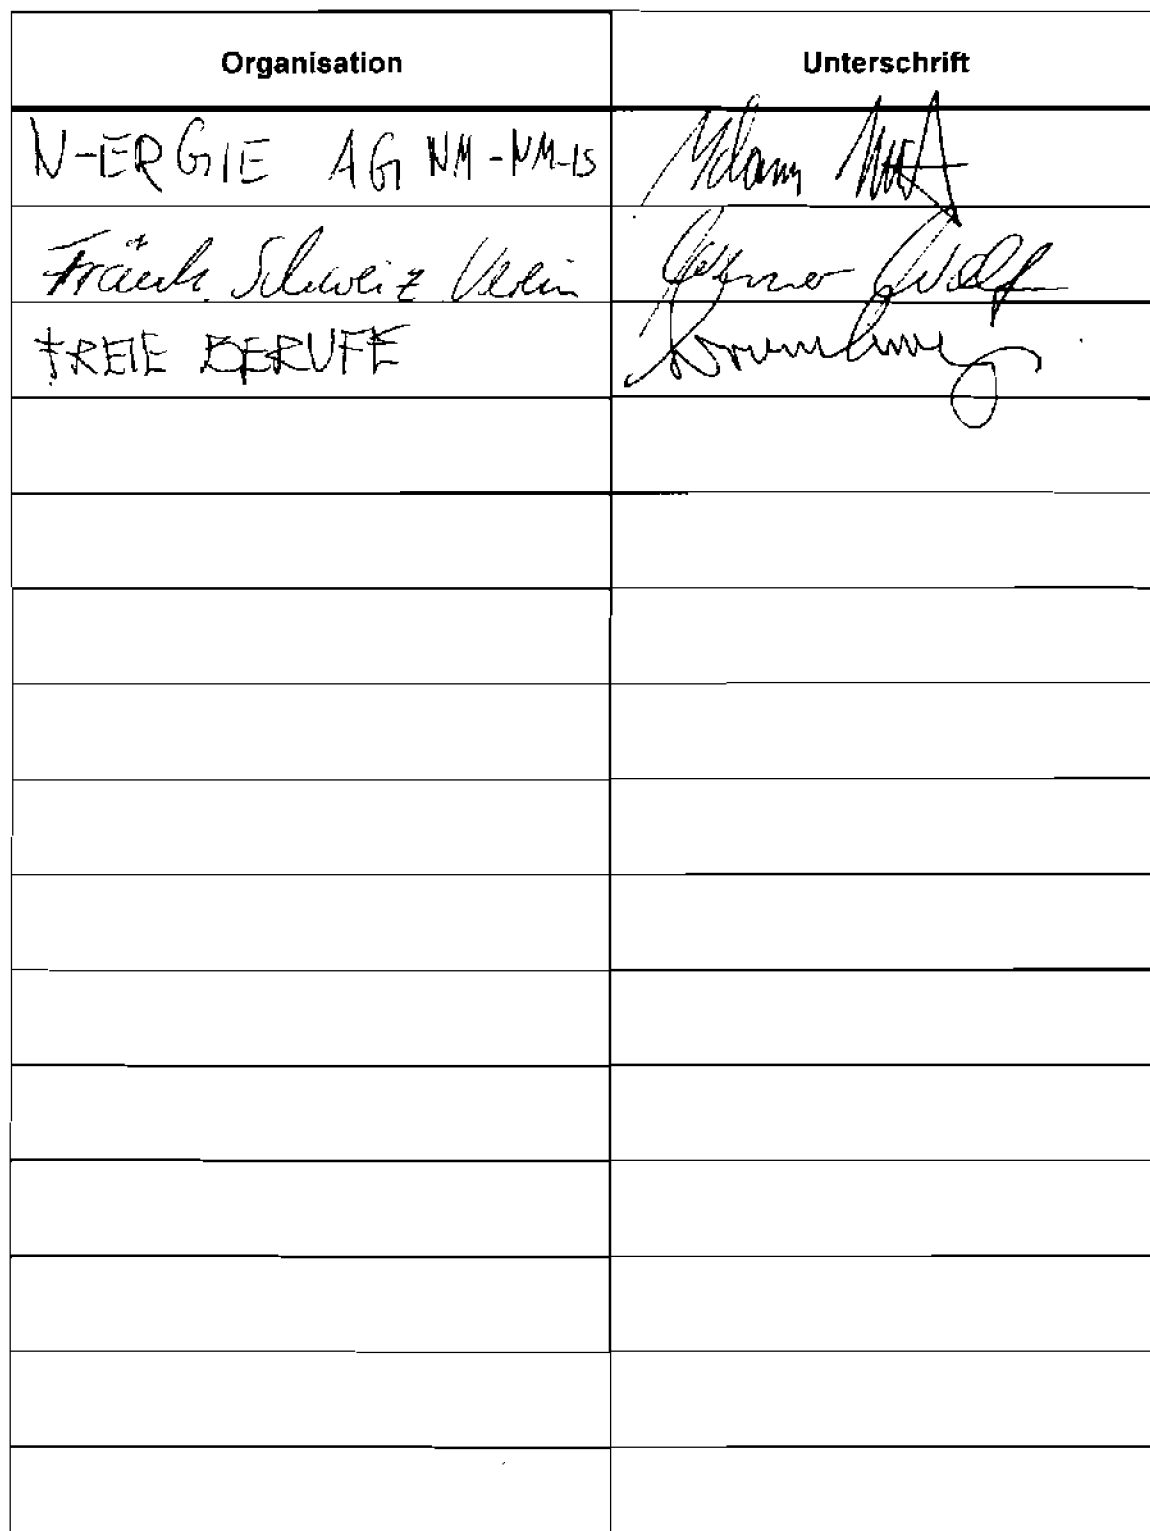 Organisation Unterschrift
N-ERGIE AG NM-NM-IS
Fränk. Schweiz Verein Wolf
FREIE BERUFE